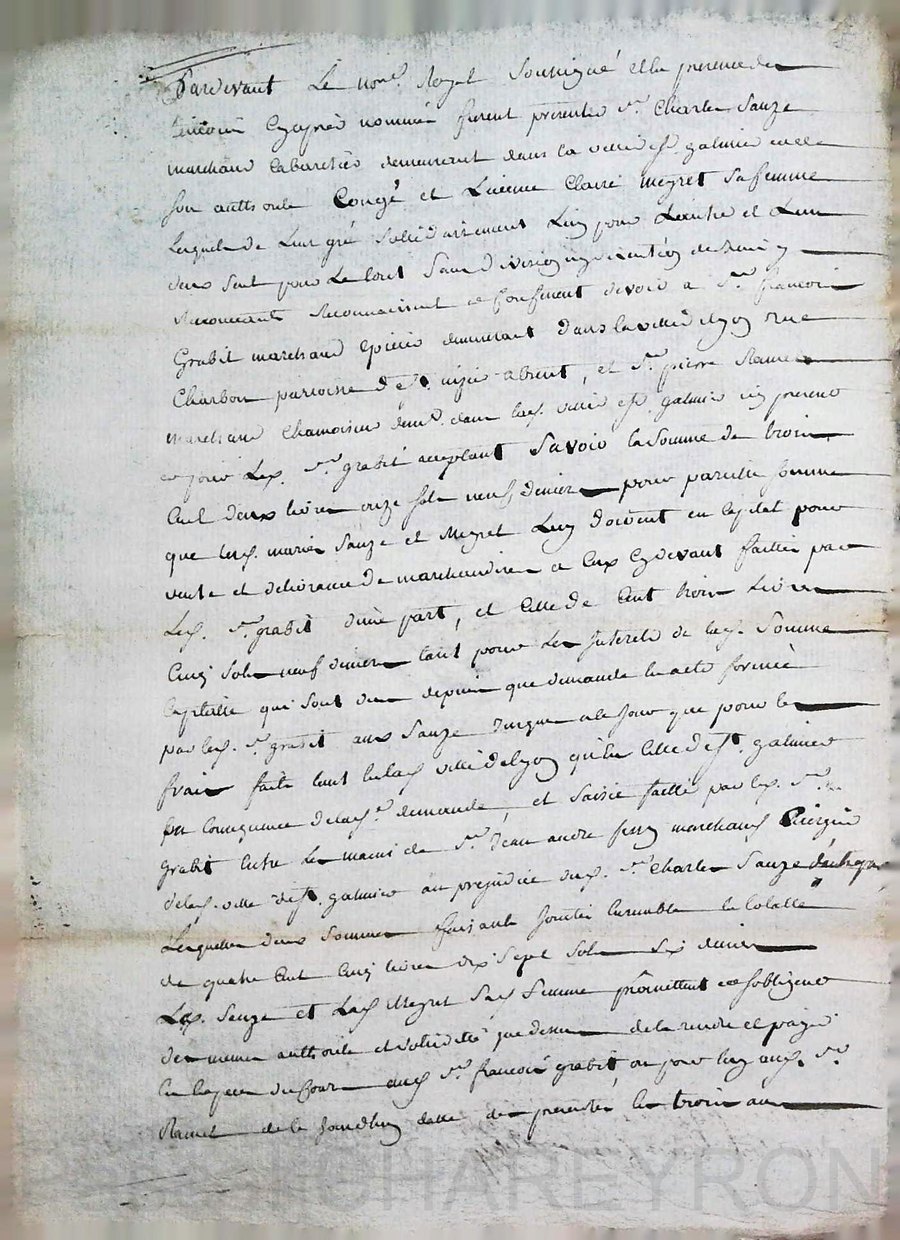 Pardevant Le no.re Royal Soussigné et en presence des
temoins Cyapres nommés furent presents S.r Charles Sauze
marchand Cabaretier demeurant dans la ville de S.t galmier et de
son authorité Congé et Licence Claire Megret Sa femme
Lesquels de Leur gré Solidairement L'un pour L'autre et L'un
deux Seul pour Le tout Sans division ny discution de biens y
Renonceants Reconnaissent et Confessent devoir à S.r francois
Grabit marchand Epicier demeurant dans la ville de lyon rue
Charbon parroisse de S.t nizier absent, et S.r pierre Ramel
marchand Chamoiseur dem.t dans lad. ville de S.t galmier icy present
et pour Led. S.r grabit acceptant Savoir la Somme de trois
Cent deux livres onze sols neuf deniers pour pareille Somme
que lesd. mariés Sauze et Megret Luy doivent en Capital pour
vente et délivrance de marchandises a Eux Cydevant faitte par
Led. S.r grabit d'une part, et Celle de Cent trois Livres
Cinq Sols neuf deniers tant pour Les Interets de lad. Somme
Capitalle qui Sont dus depuis que demande en a eté formée
par led. S.r grabit aux Sauze Jusques a ce Jour que pour les
frais faits tant en lad. ville de lyon qu'en Celle de S.t galmier
en Consequence de lad.e demande, et Saisie faitte par led. S.r
Grabit Entre Les mains de S.r Jean andre marchand
de lad. ville de S.t galmier au prejudice dud. S.r Charles Sauze d'autre part
Lesquelles deux Sommes faisants Jointes Ensemble la totalle
de quatre Cent Cinq livres dix Sept Sols Six deniers
Led. Sauze et Lad. Megret Sad. femme promettent et Sobligent
des memes authorité et solidité que dessus de la rendre et payer
En Especes du Cours aud. S.r francois grabit ou pour luy aud. S.r
Ramel de ce Jourdhuy datte des presentes En trois ans
CHAREYRON